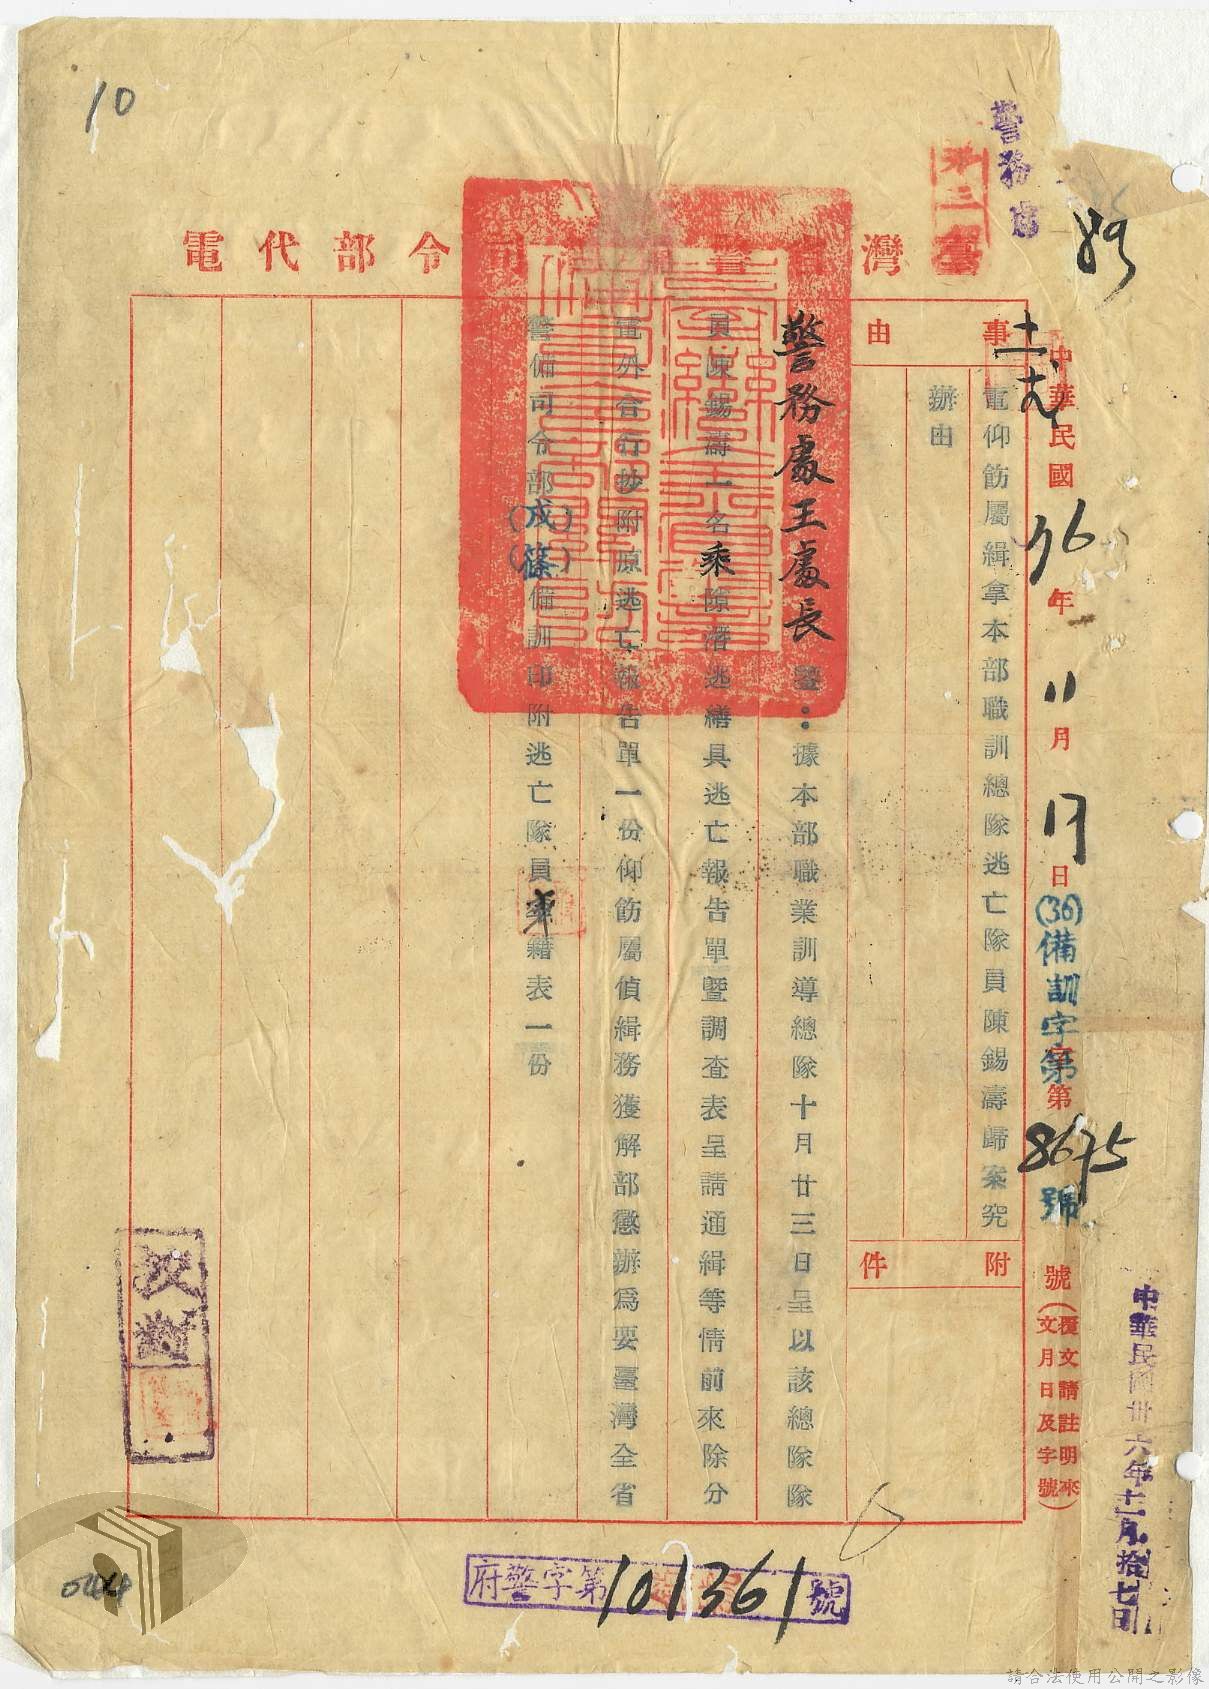 10
警務處
第三
89
臺灣省警備司令部代電
中華民國36年11月17日(36)備訓字第8675號
(覆文請註明來文月日及字號)
事由
電仰飭屬緝拿本部職訓總隊逃亡隊員陳錫濤歸案究
辦由
附件
警務處王處長鑒：據本部職業訓導總隊十月廿三日呈以該總隊隊
員陳錫濤一名乘隙潛逃繕具逃亡報告單暨調查表呈請通緝等情前來除分
電外合行抄附原逃亡報告單一份仰飭屬偵緝務獲解部懲辦為要臺灣全省
警備司令部(戍)(篠)備訓印附逃亡隊員年籍表一份
中華民國卅六年十一月拾七日
府警字第101361號
0244
請合法使用公開之影像